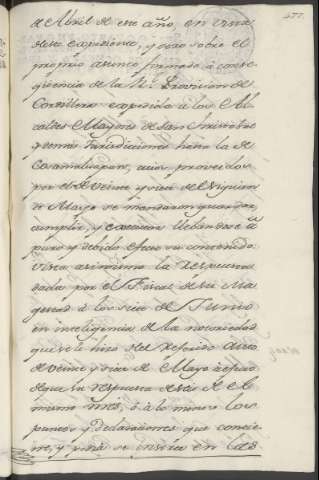 477.
de Abril de este año, en vista
de su expediente, y otro sobre el
proprio asunto formado à conse-
quencia de la Rl. Provision de
Cordillera expedida à los Al-
caldes Mayores de San Christoval
y demas Jurisdicciones hasta la de
Cosamaloapan, autos proveidos
por el de veinte y siete del siguiente
de Mayo se mandaron guardar,
cumplir, y executar llebandose à
puro y debido efecto su contenido:
vista asimismo la respuesta
dada por el Fiscal de su Ma-
gestad à los seis de Junio
en inteligencia de la notoriedad
que se le hizo del referido Auto
de veinte y siete de Mayo
de que la respuesta de seis de el
mismo mes, ò à lo menos los
puntos y declaraciones que contie-
ne, y pide se inserten en las